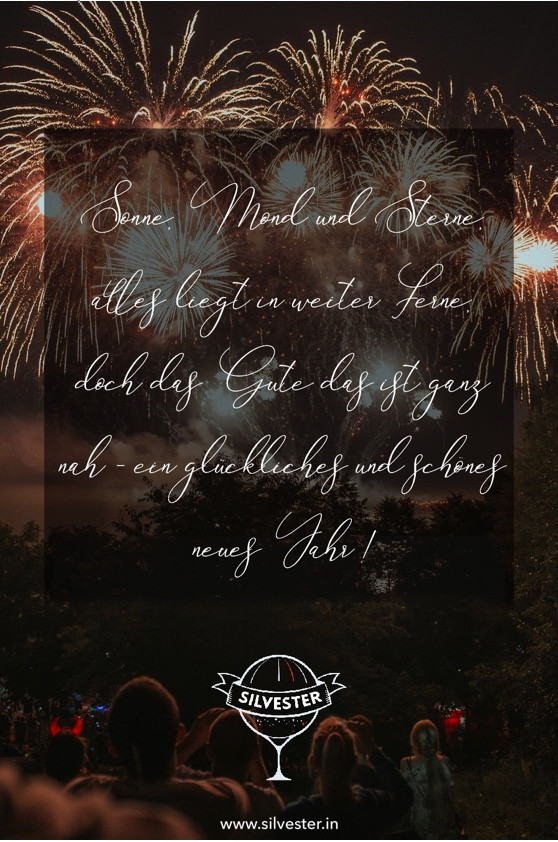 Sonne, Mond und Sterne,
alles liegt in weiter Ferne,
doch das Gute das ist ganz
nah - ein glückliches und schönes
neues Jahr!
SILVESTER
www.silvester.in